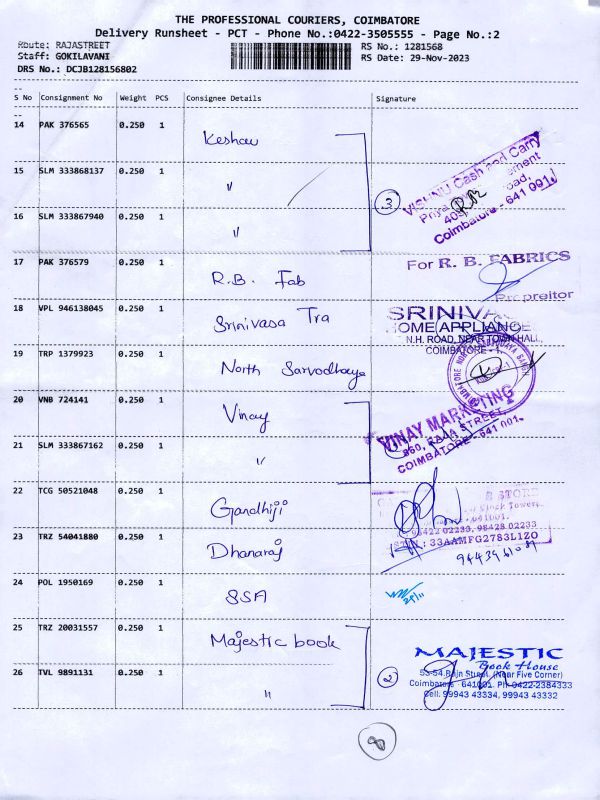 THE PROFESSIONAL COURIERS, COIMBATORE
Delivery Runsheet - PCT - Phone No.:0422-3505555 - Page No.:2
Route: RAJASTREET
Staff: GOKILAVANI
DRS No.: DCJB128156802
RS No.: 1281568
RS Date: 29-Nov-2023
S No Consignment No Weight PCS Consignee Details Signature
14 PAK 376565 0.250 1 Keshav
15 SLM 333868137 0.250 1 "
16 SLM 333867940 0.250 1 "
3
VISHNU Cash and Carry
Coimbatore - 641 001.
17 PAK 376579 0.250 1 R.B. Fab
For R. B. FABRICS
Propreitor
18 VPL 946138045 0.250 1 Srinivasa Tra
HOME APPLIANCE
N.H. ROAD, NEAR TOWN HALL,
COIMBATORE - 1.
19 TRP 1379923 0.250 1 North Sarvodhaya
20 VNB 724141 0.250 1 Vinay
21 SLM 333867162 0.250 1 "
VINAY MARKETING
860, RAJA STREET,
COIMBATORE - 641 001.
22 TCG 50521048 0.250 1 Gandhiji
STORE
Clock Tower,
98422 02233, 98428 02233
: 33AAMFG2783L1ZO
23 TRZ 54041880 0.250 1 Dhanaraj
24 POL 1950169 0.250 1 SSA
29/11
25 TRZ 20031557 0.250 1 Majestic book
26 TVL 9891131 0.250 1 "
2
MAJESTIC
Book House
53-54, Raja Street, (Near Five Corner)
Coimbatore - 641001. Ph: 0422-2384333
Cell: 99943 43334, 99943 43332
8